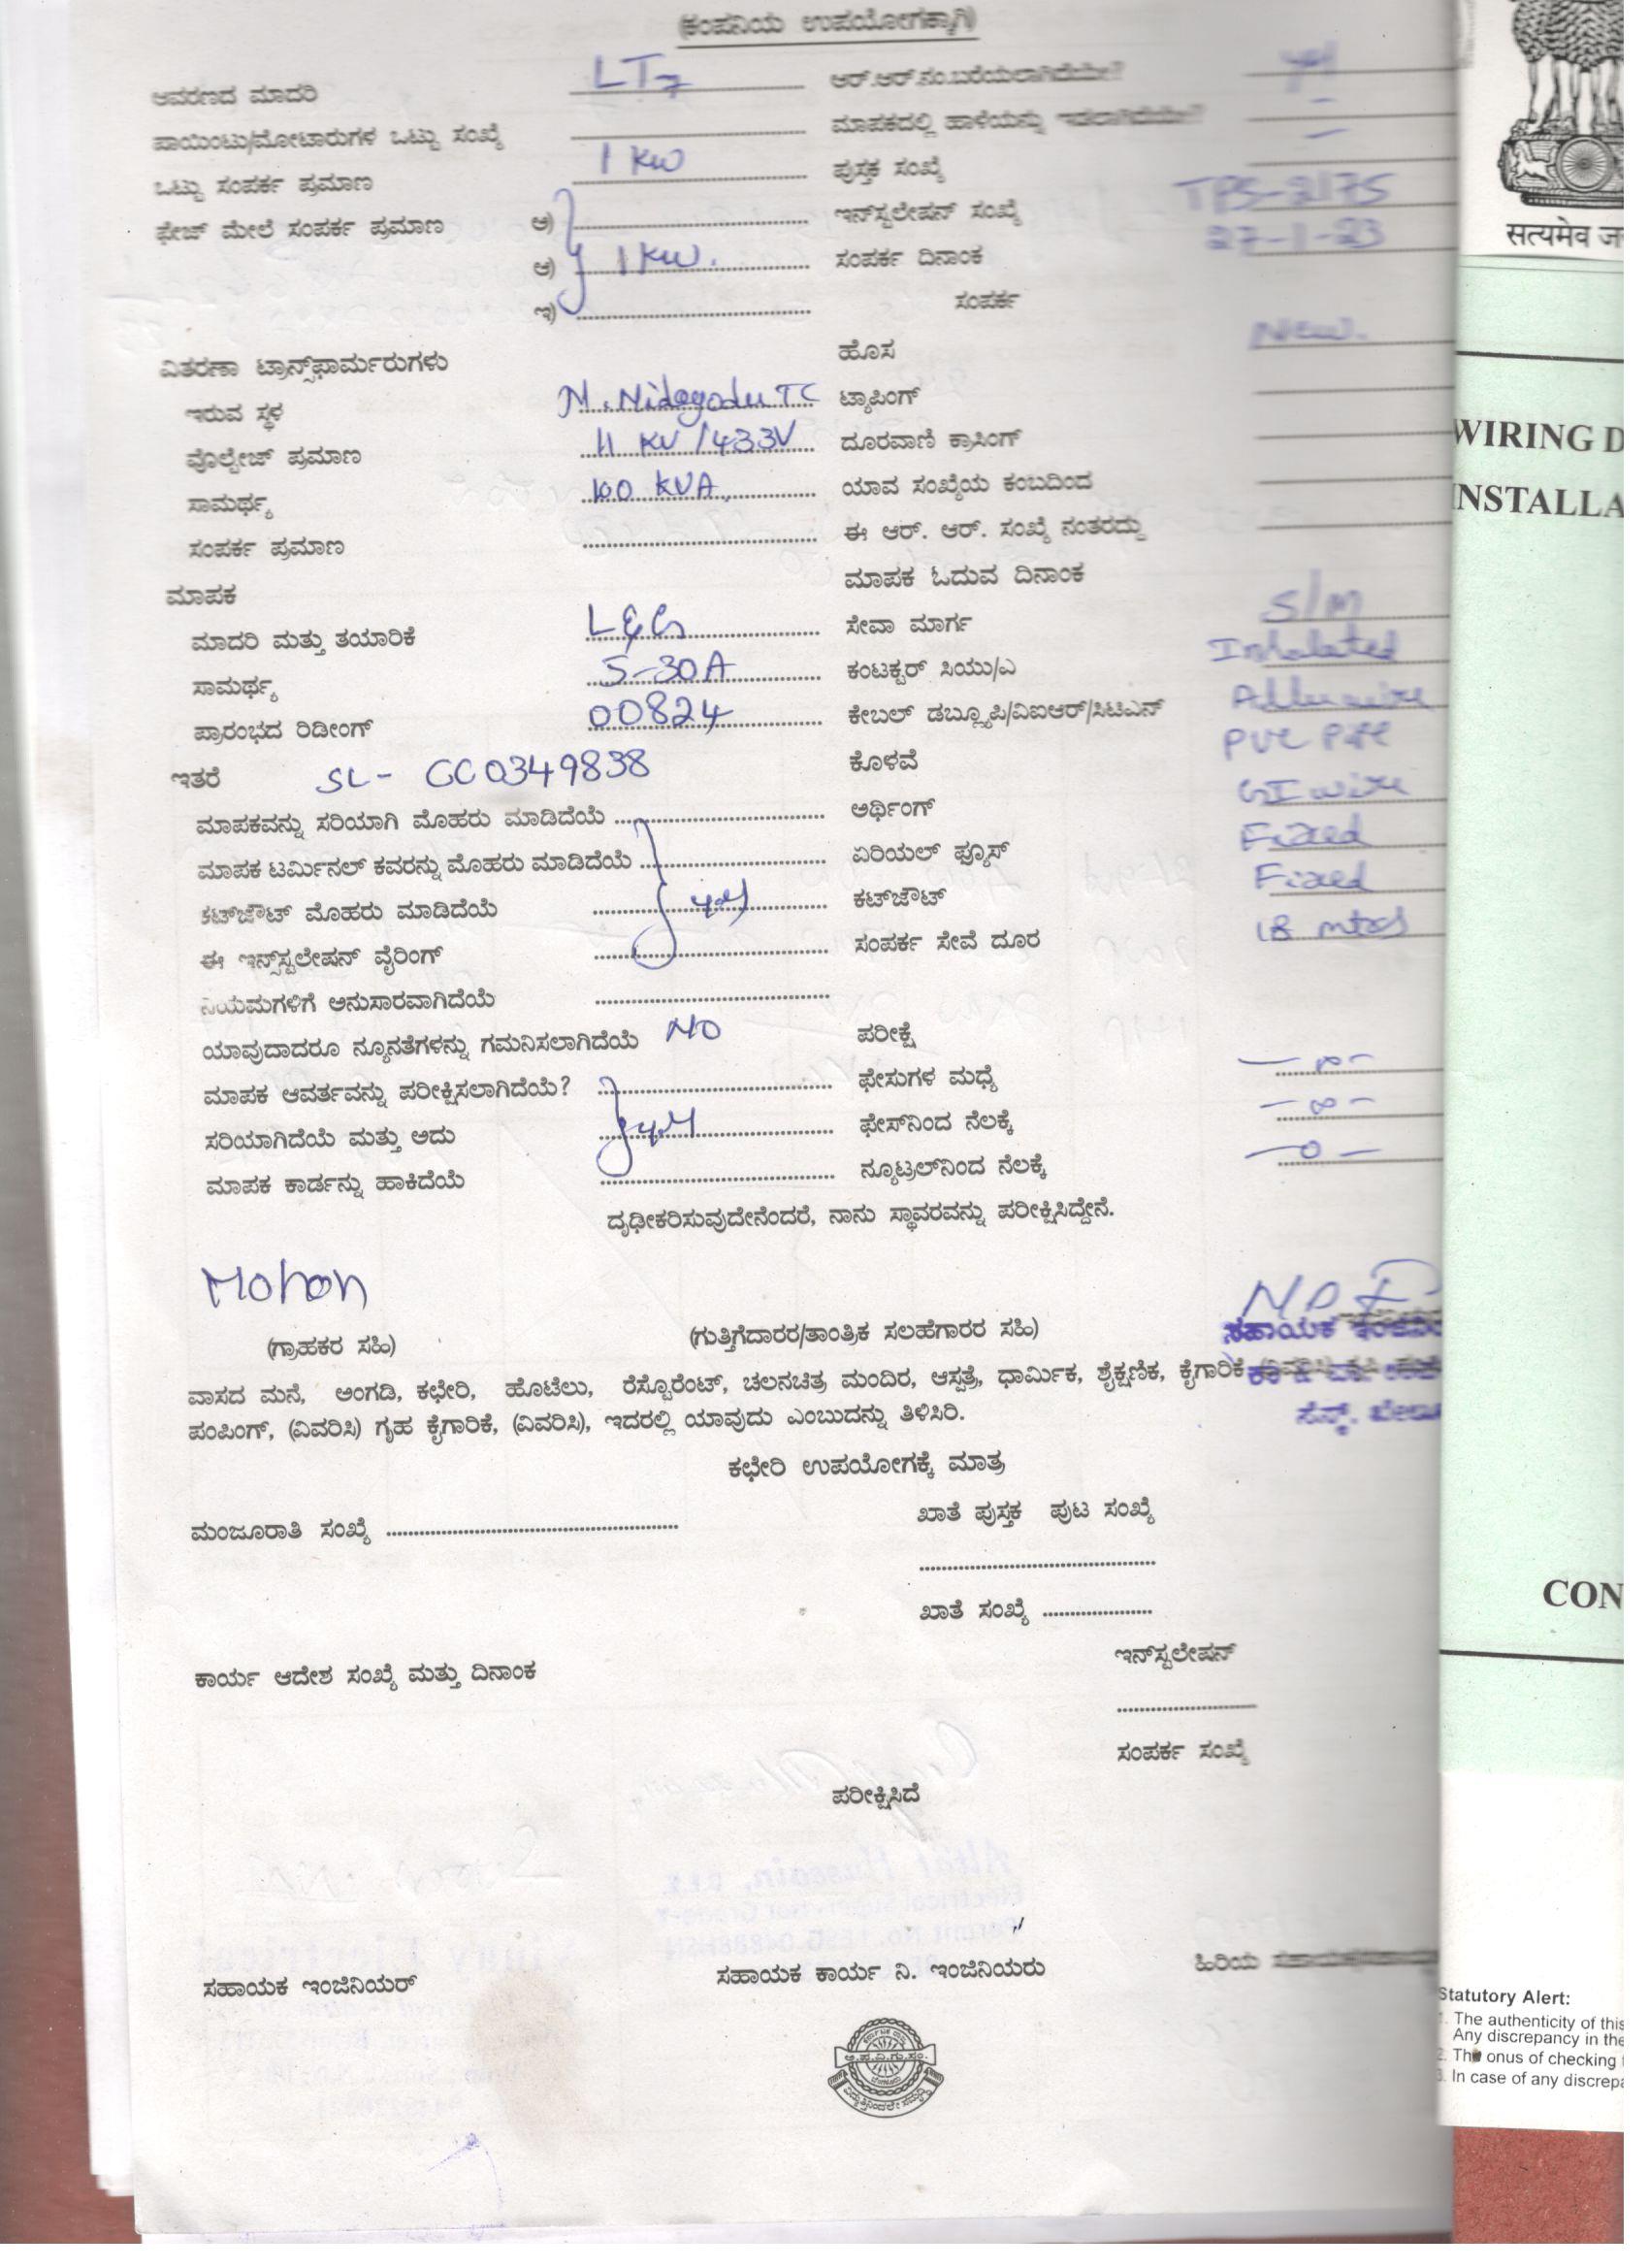 (ಕಂಪನಿಯ ಉಪಯೋಗಕ್ಕಾಗಿ)
ಆವರಣದ ಮಾದರಿ LT7 ಆರ್.ಆರ್.ನಂ.ಬರೆಯಲಾಗಿದೆಯೇ?
ಪಾಯಿಂಟು/ಮೋಟಾರುಗಳ ಒಟ್ಟು ಸಂಖ್ಯೆ ಮಾಪಕದಲ್ಲಿ ಹಾಳೆಯನ್ನು ಇಡಲಾಗಿದೆಯೇ? -
ಒಟ್ಟು ಸಂಪರ್ಕ ಪ್ರಮಾಣ 1 KW ಪುಸ್ತಕ ಸಂಖ್ಯೆ -
ಫೇಜ್ ಮೇಲೆ ಸಂಪರ್ಕ ಪ್ರಮಾಣ ಅ) ಇನ್‌ಸ್ಟಲೇಷನ್ ಸಂಖ್ಯೆ TPS-2175
ಆ) 1 KW. ಸಂಪರ್ಕ ದಿನಾಂಕ 27-1-23
ಇ) ಸಂಪರ್ಕ
ವಿತರಣಾ ಟ್ರಾನ್ಸ್‌ಫಾರ್ಮರುಗಳು ಹೊಸ New.
ಇರುವ ಸ್ಥಳ N. Nidagodu TC ಟ್ಯಾಪಿಂಗ್
ವೊಲ್ಟೇಜ್ ಪ್ರಮಾಣ 11 KV /433V ದೂರವಾಣಿ ಕ್ರಾಸಿಂಗ್
ಸಾಮರ್ಥ್ಯ 100 KVA, ಯಾವ ಸಂಖ್ಯೆಯ ಕಂಬದಿಂದ
ಸಂಪರ್ಕ ಪ್ರಮಾಣ ಈ ಆರ್. ಆರ್. ಸಂಖ್ಯೆ ನಂತರದ್ದು
ಮಾಪಕ ಮಾಪಕ ಓದುವ ದಿನಾಂಕ
ಮಾದರಿ ಮತ್ತು ತಯಾರಿಕೆ L&G ಸೇವಾ ಮಾರ್ಗ S/M
ಸಾಮರ್ಥ್ಯ 5-30A ಕಂಟಕ್ಟರ್ ಸಿಯು/ಎ Inhalated
ಪ್ರಾರಂಭದ ರಿಡೀಂಗ್ 00824 ಕೇಬಲ್ ಡಬ್ಲ್ಯೂಪಿ/ವಿಐಆರ್/ಸಿಟಿಎನ್
ಇತರೆ SL- GC0349838 ಕೊಳವೆ PVC Pipe
ಮಾಪಕವನ್ನು ಸರಿಯಾಗಿ ಮೊಹರು ಮಾಡಿದೆಯೆ ಅರ್ಥಿಂಗ್ GI wire
ಮಾಪಕ ಟರ್ಮಿನಲ್ ಕವರನ್ನು ಮೊಹರು ಮಾಡಿದೆಯೆ ಏರಿಯಲ್ ಫ್ಯೂಸ್ Fixed
ಕಟ್‌ಜೌಟ್ ಮೊಹರು ಮಾಡಿದೆಯೆ yes ಕಟ್‌ಜೌಟ್ Fixed
ಈ ಇನ್ಸ್‌ಸ್ಟಲೇಷನ್ ವೈರಿಂಗ್ ಸಂಪರ್ಕ ಸೇವೆ ದೂರ 18 mtrs
ನಿಯಮಗಳಿಗೆ ಅನುಸಾರವಾಗಿದೆಯೆ
ಯಾವುದಾದರೂ ನ್ಯೂನತೆಗಳನ್ನು ಗಮನಿಸಲಾಗಿದೆಯೆ NO ಪರೀಕ್ಷೆ
ಮಾಪಕ ಆವರ್ತವನ್ನು ಪರೀಕ್ಷಿಸಲಾಗಿದೆಯೆ? ಫೇಸುಗಳ ಮಧ್ಯೆ
ಸರಿಯಾಗಿದೆಯೆ ಮತ್ತು ಅದು yes ಫೇಸ್‌ನಿಂದ ನೆಲಕ್ಕೆ -∞-
ಮಾಪಕ ಕಾರ್ಡನ್ನು ಹಾಕಿದೆಯೆ ನ್ಯೂಟ್ರಲ್‌ನಿಂದ ನೆಲಕ್ಕೆ -0-
ದೃಢೀಕರಿಸುವುದೇನೆಂದರೆ, ನಾನು ಸ್ಥಾವರವನ್ನು ಪರೀಕ್ಷಿಸಿದ್ದೇನೆ.
Mohan
(ಗ್ರಾಹಕರ ಸಹಿ) (ಗುತ್ತಿಗೆದಾರರ/ತಾಂತ್ರಿಕ ಸಲಹೆಗಾರರ ಸಹಿ) ಸಹಾಯಕ
ವಾಸದ ಮನೆ, ಅಂಗಡಿ, ಕಛೇರಿ, ಹೊಟೆಲು, ರೆಸ್ಟೊರೆಂಟ್, ಚಲನಚಿತ್ರ ಮಂದಿರ, ಆಸ್ಪತ್ರೆ, ಧಾರ್ಮಿಕ, ಶೈಕ್ಷಣಿಕ, ಕೈಗಾರಿಕೆ
ಪಂಪಿಂಗ್, (ವಿವರಿಸಿ) ಗೃಹ ಕೈಗಾರಿಕೆ, (ವಿವರಿಸಿ), ಇದರಲ್ಲಿ ಯಾವುದು ಎಂಬುದನ್ನು ತಿಳಿಸಿರಿ.
ಕಛೇರಿ ಉಪಯೋಗಕ್ಕೆ ಮಾತ್ರ
ಮಂಜೂರಾತಿ ಸಂಖ್ಯೆ ಖಾತೆ ಪುಸ್ತಕ ಪುಟ ಸಂಖ್ಯೆ
ಖಾತೆ ಸಂಖ್ಯೆ
ಇನ್‌ಸ್ಟಲೇಷನ್
ಕಾರ್ಯ ಆದೇಶ ಸಂಖ್ಯೆ ಮತ್ತು ದಿನಾಂಕ
ಸಂಪರ್ಕ ಸಂಖ್ಯೆ
ಪರೀಕ್ಷಿಸಿದೆ
ಸಹಾಯಕ ಇಂಜಿನಿಯರ್ ಸಹಾಯಕ ಕಾರ್ಯ ನಿ. ಇಂಜಿನಿಯರು ಹಿರಿಯ
सत्यमेव ज
WIRING D
INSTALLA
CON
Statutory Alert:
1. The authenticity of this
Any discrepancy in the
2. The onus of checking
3. In case of any discrepa